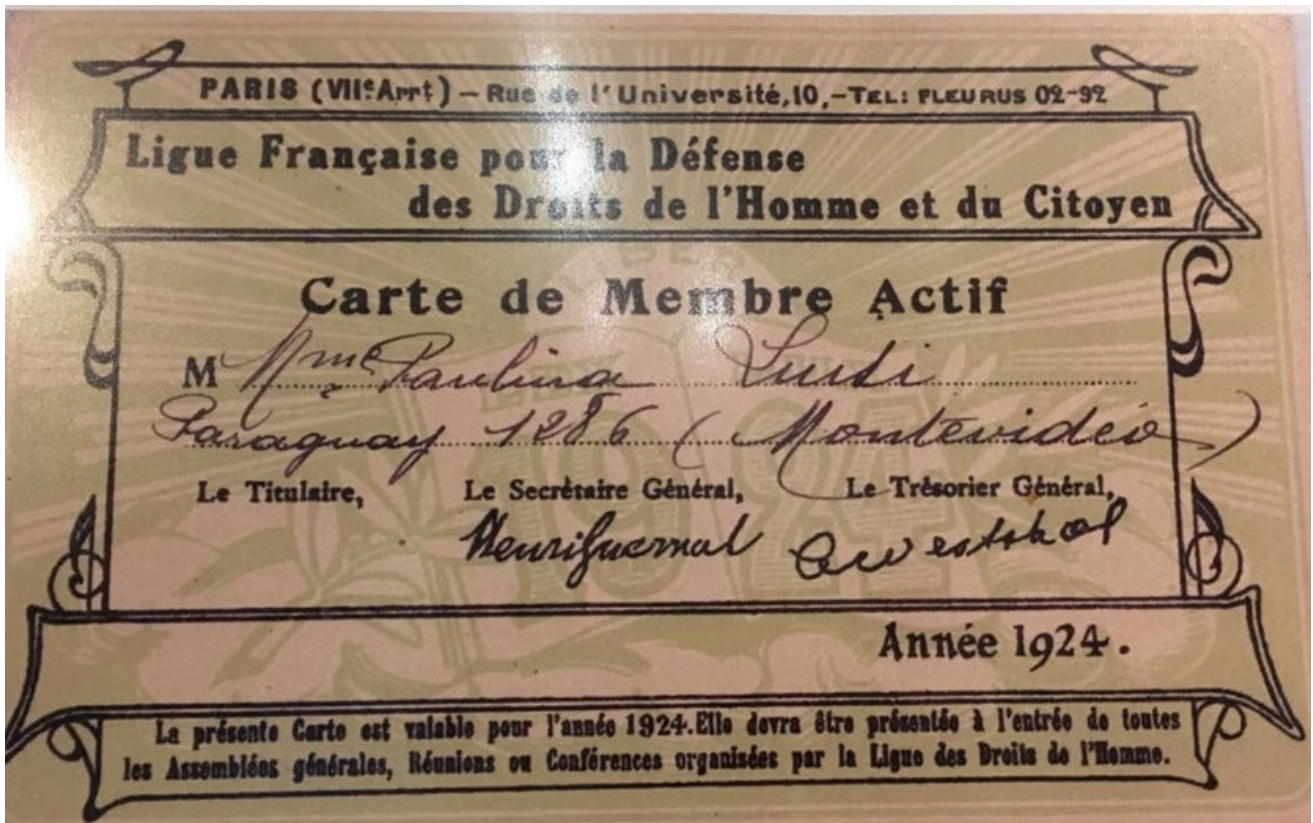 PARIS (VIIe Arrt) – Rue de l'Université, 10, – TEL: FLEURUS 02-92
Ligue Française pour la Défense
des Droits de l'Homme et du Citoyen
Carte de Membre Actif
M Mme Paulina Luisi
Paraguay 1286 (Montevidéo)
Le Titulaire, Le Secrétaire Général, Le Trésorier Général,
Henri Guernut
Année 1924.
La présente Carte est valable pour l'année 1924. Elle devra être présentée à l'entrée de toutes
les Assemblées générales, Réunions ou Conférences organisées par la Ligue des Droits de l'Homme.